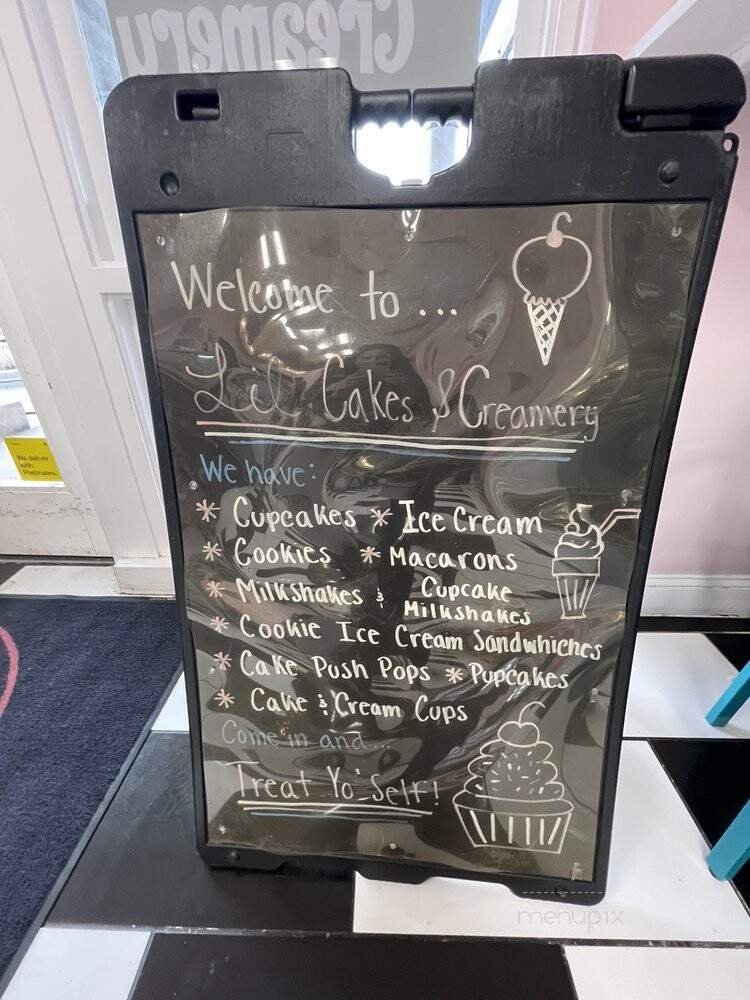 Creamery
Welcome to ...
Lil Cakes & Creamery
We have:
* Cupcakes * Ice Cream
* Cookies * Macarons
* Milkshakes & Cupcake Milkshakes
* Cookie Ice Cream Sandwhiches
* Cake Push Pops * Pupcakes
* Cake & Cream Cups
Come in and...
Treat Yo' Self!
We deliver
with
Postmates.
menupix